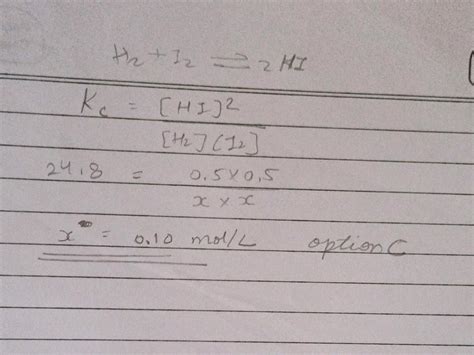 H₂ + I₂ ⇌ 2HI
Kc = [HI]²
[H₂][I₂]
24.8 = 0.5 x 0.5
x × x
x = 0.10 mol/L option C